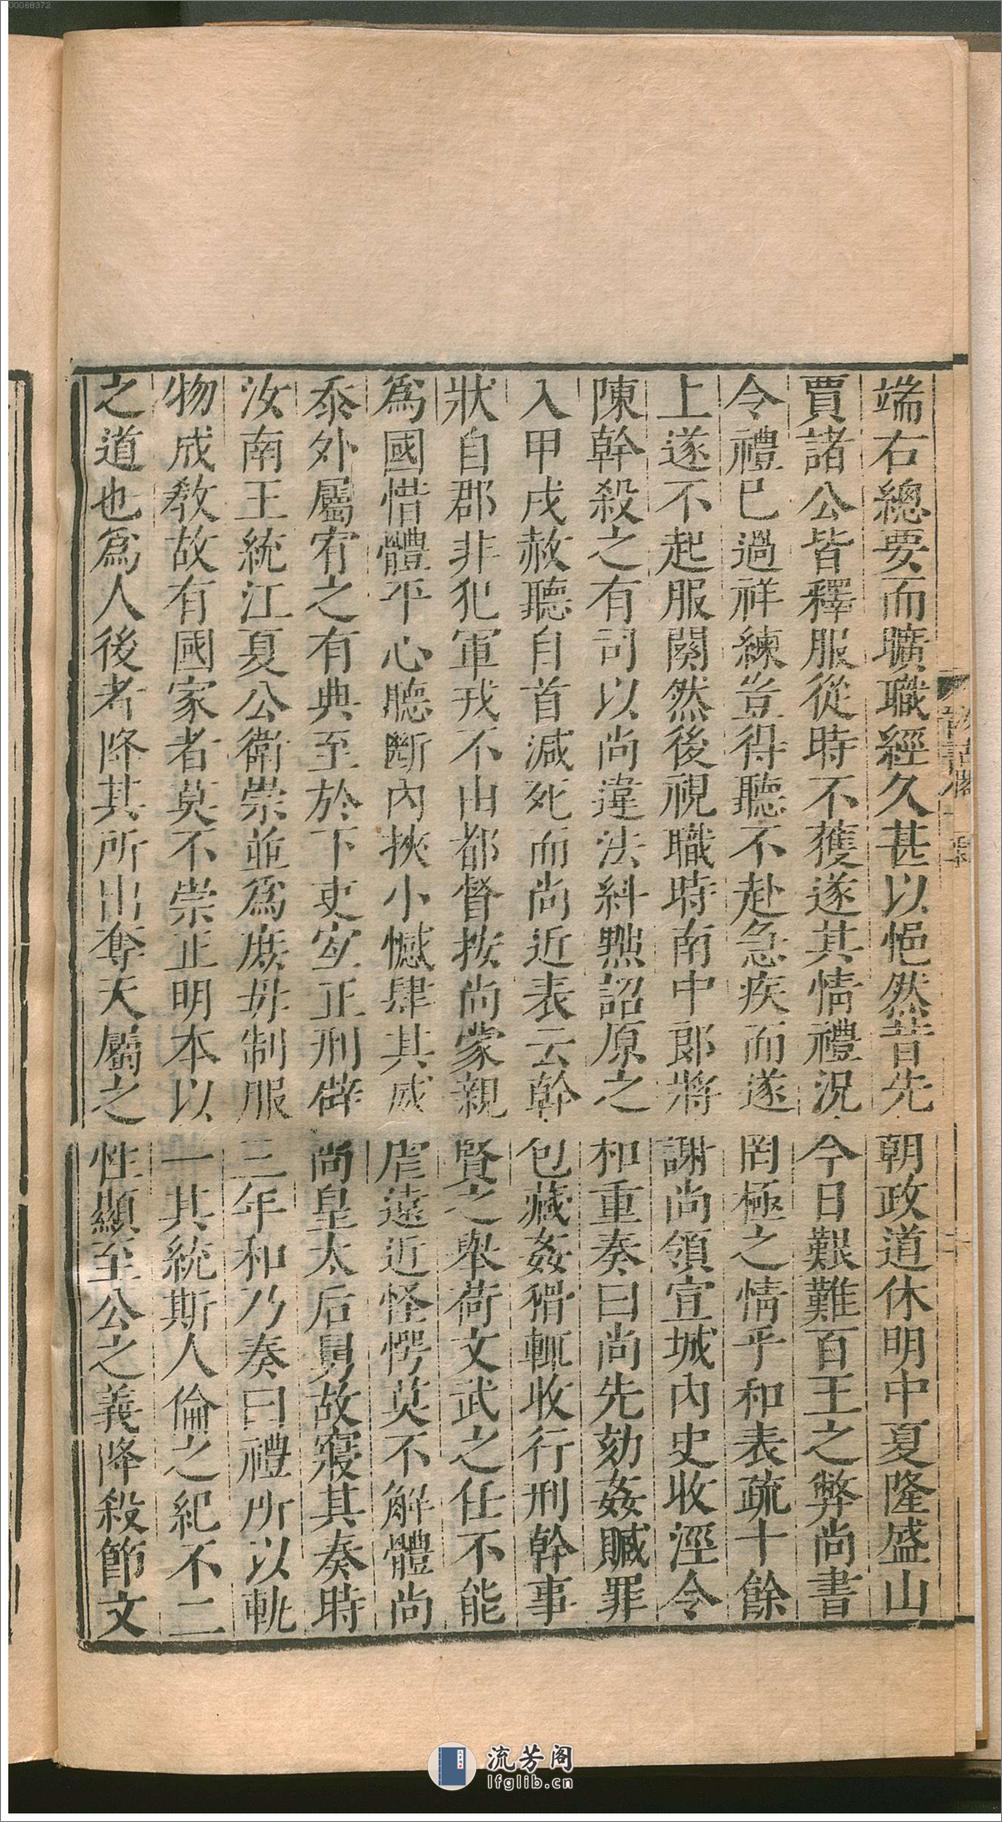 端右總要而曠職經久甚以悒然昔先朝政道休明中夏隆盛山
賈諸公皆釋服從時不獲遂其情禮況今日艱難百王之弊尚書
令禮已過祥練豈得聽不赴急疾而遂罔極之情乎和表疏十餘
上遂不起服闋然後視職時南中郎將謝尚領宣城內史收涇令
陳幹殺之有司以尚違法糾黜詔原之和重奏曰尚先劾姦贓罪
入甲戌赦聽自首減死而尚近表云幹包藏姦猾輒收行刑幹事
狀自郡非犯軍戎不由都督按尚蒙親賢之舉荷文武之任不能
爲國惜體平心聽斷內挾小憾肆其威虐遠近怪愕莫不解體尚
忝外屬宥之有典至於下吏宜正刑辟尚皇太后舅故寢其奏時
汝南王統江夏公衛崇並爲庶母制服三年和乃奏曰禮所以軌
物成教故有國家者莫不崇正明本以一其統斯人倫之紀不二
之道也爲人後者降其所出奪天屬之性顯至公之義降殺節文
流芳阁
lfglib.cn
00068372